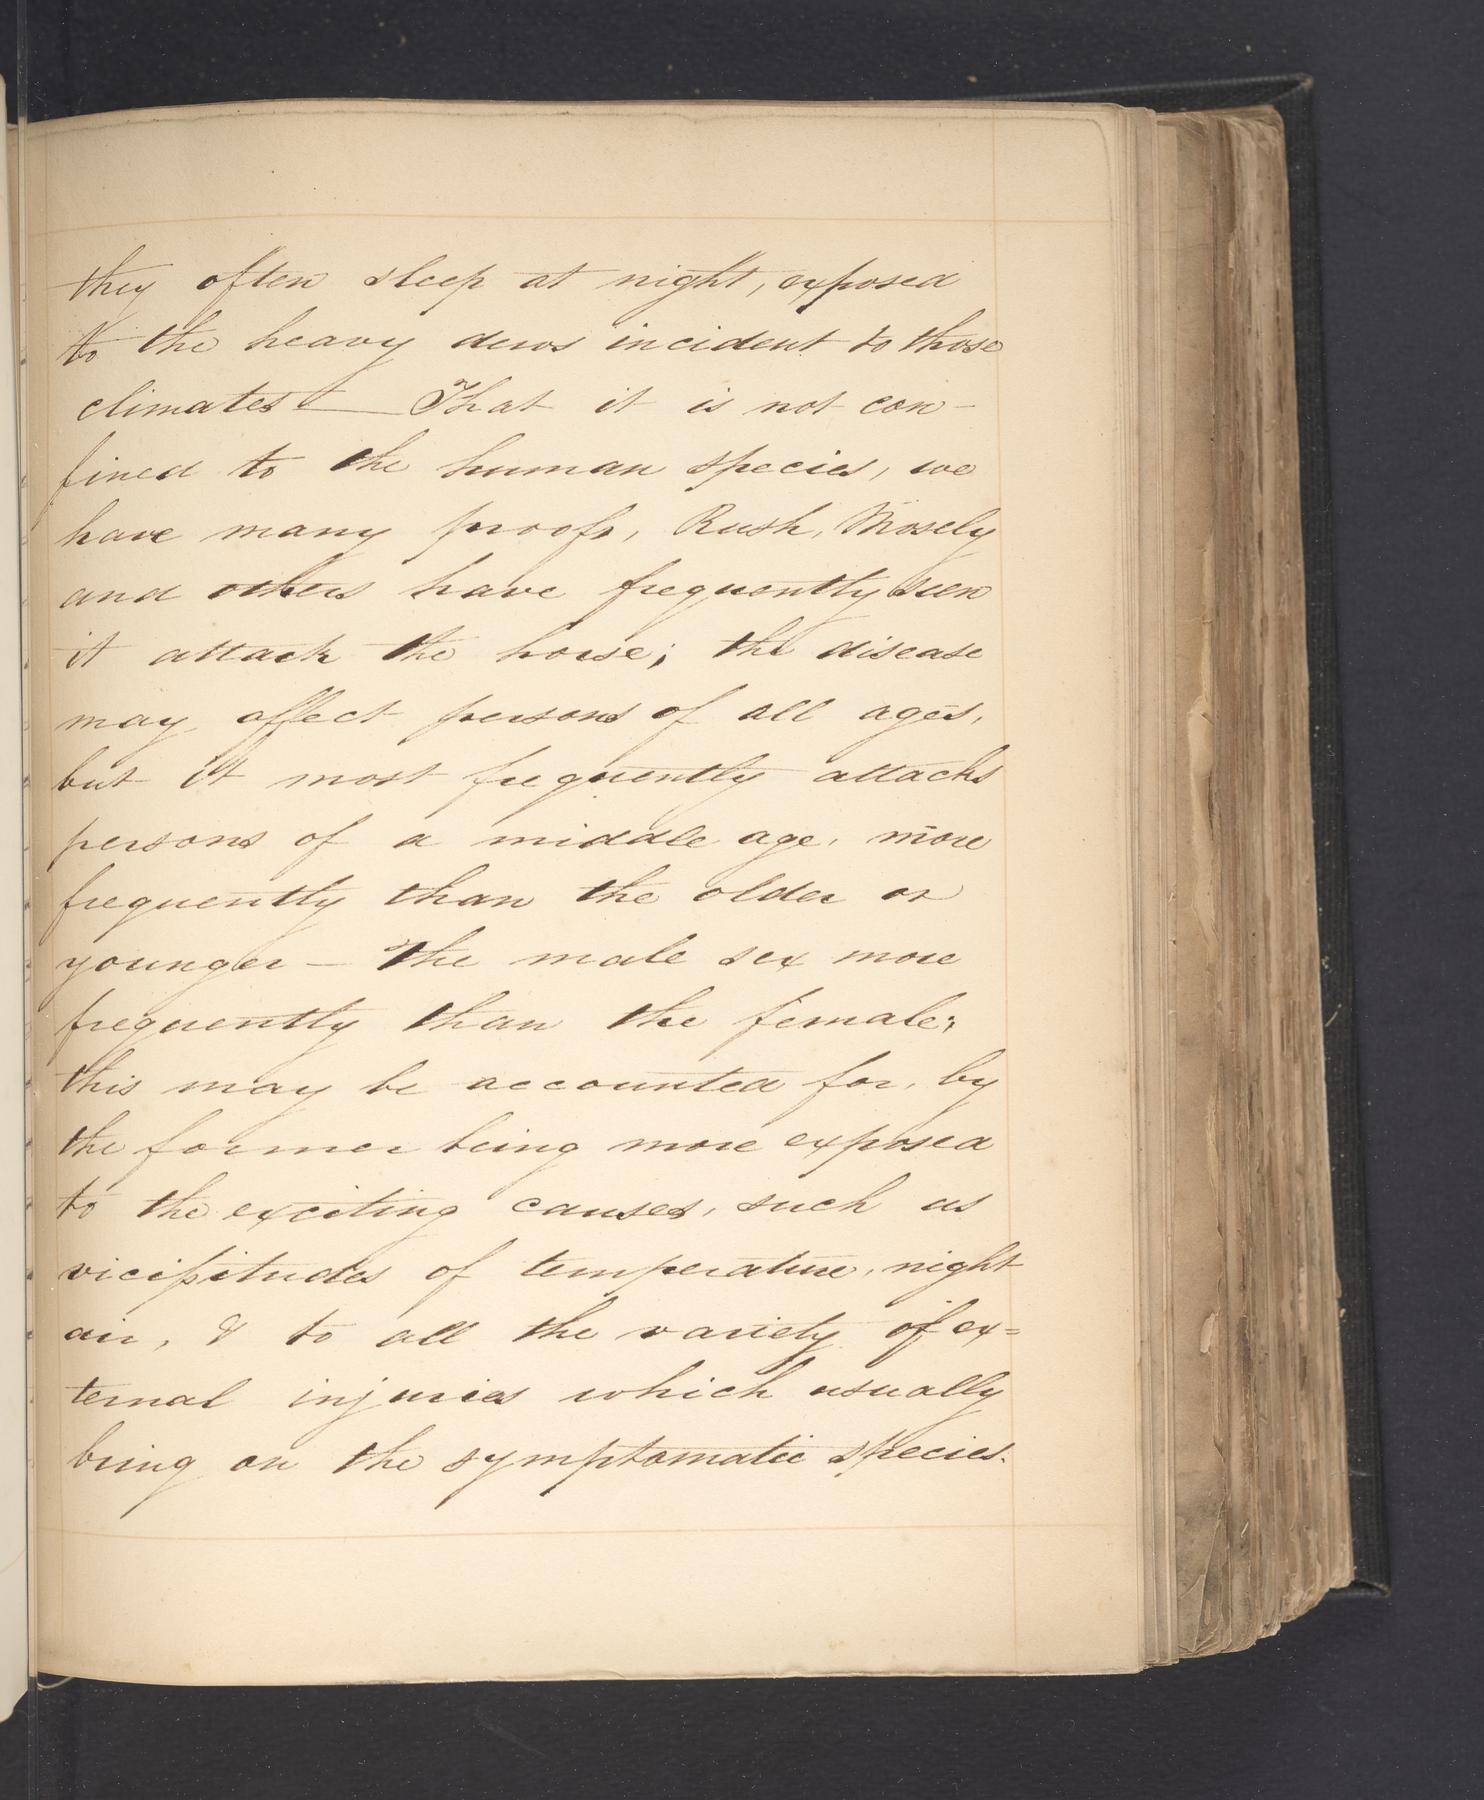 they often sleep at night, exposed
to the heavy dews incident to those
climates — That it is not con-
fined to the human species, we
have many proofs, Rush, Mosely
and others have frequently seen
it attack the horse; the disease
may affect persons of all ages,
but it most frequently attacks
persons of a middle age, more
frequently than the older or
younger — The male sex more
frequently than the female;
this may be accounted for, by
the former being more exposed
to the exciting causes, such as
vicissitudes of temperature, night
air, & to all the variety of ex=
ternal injuries which usually
bring on the symptomatic species.